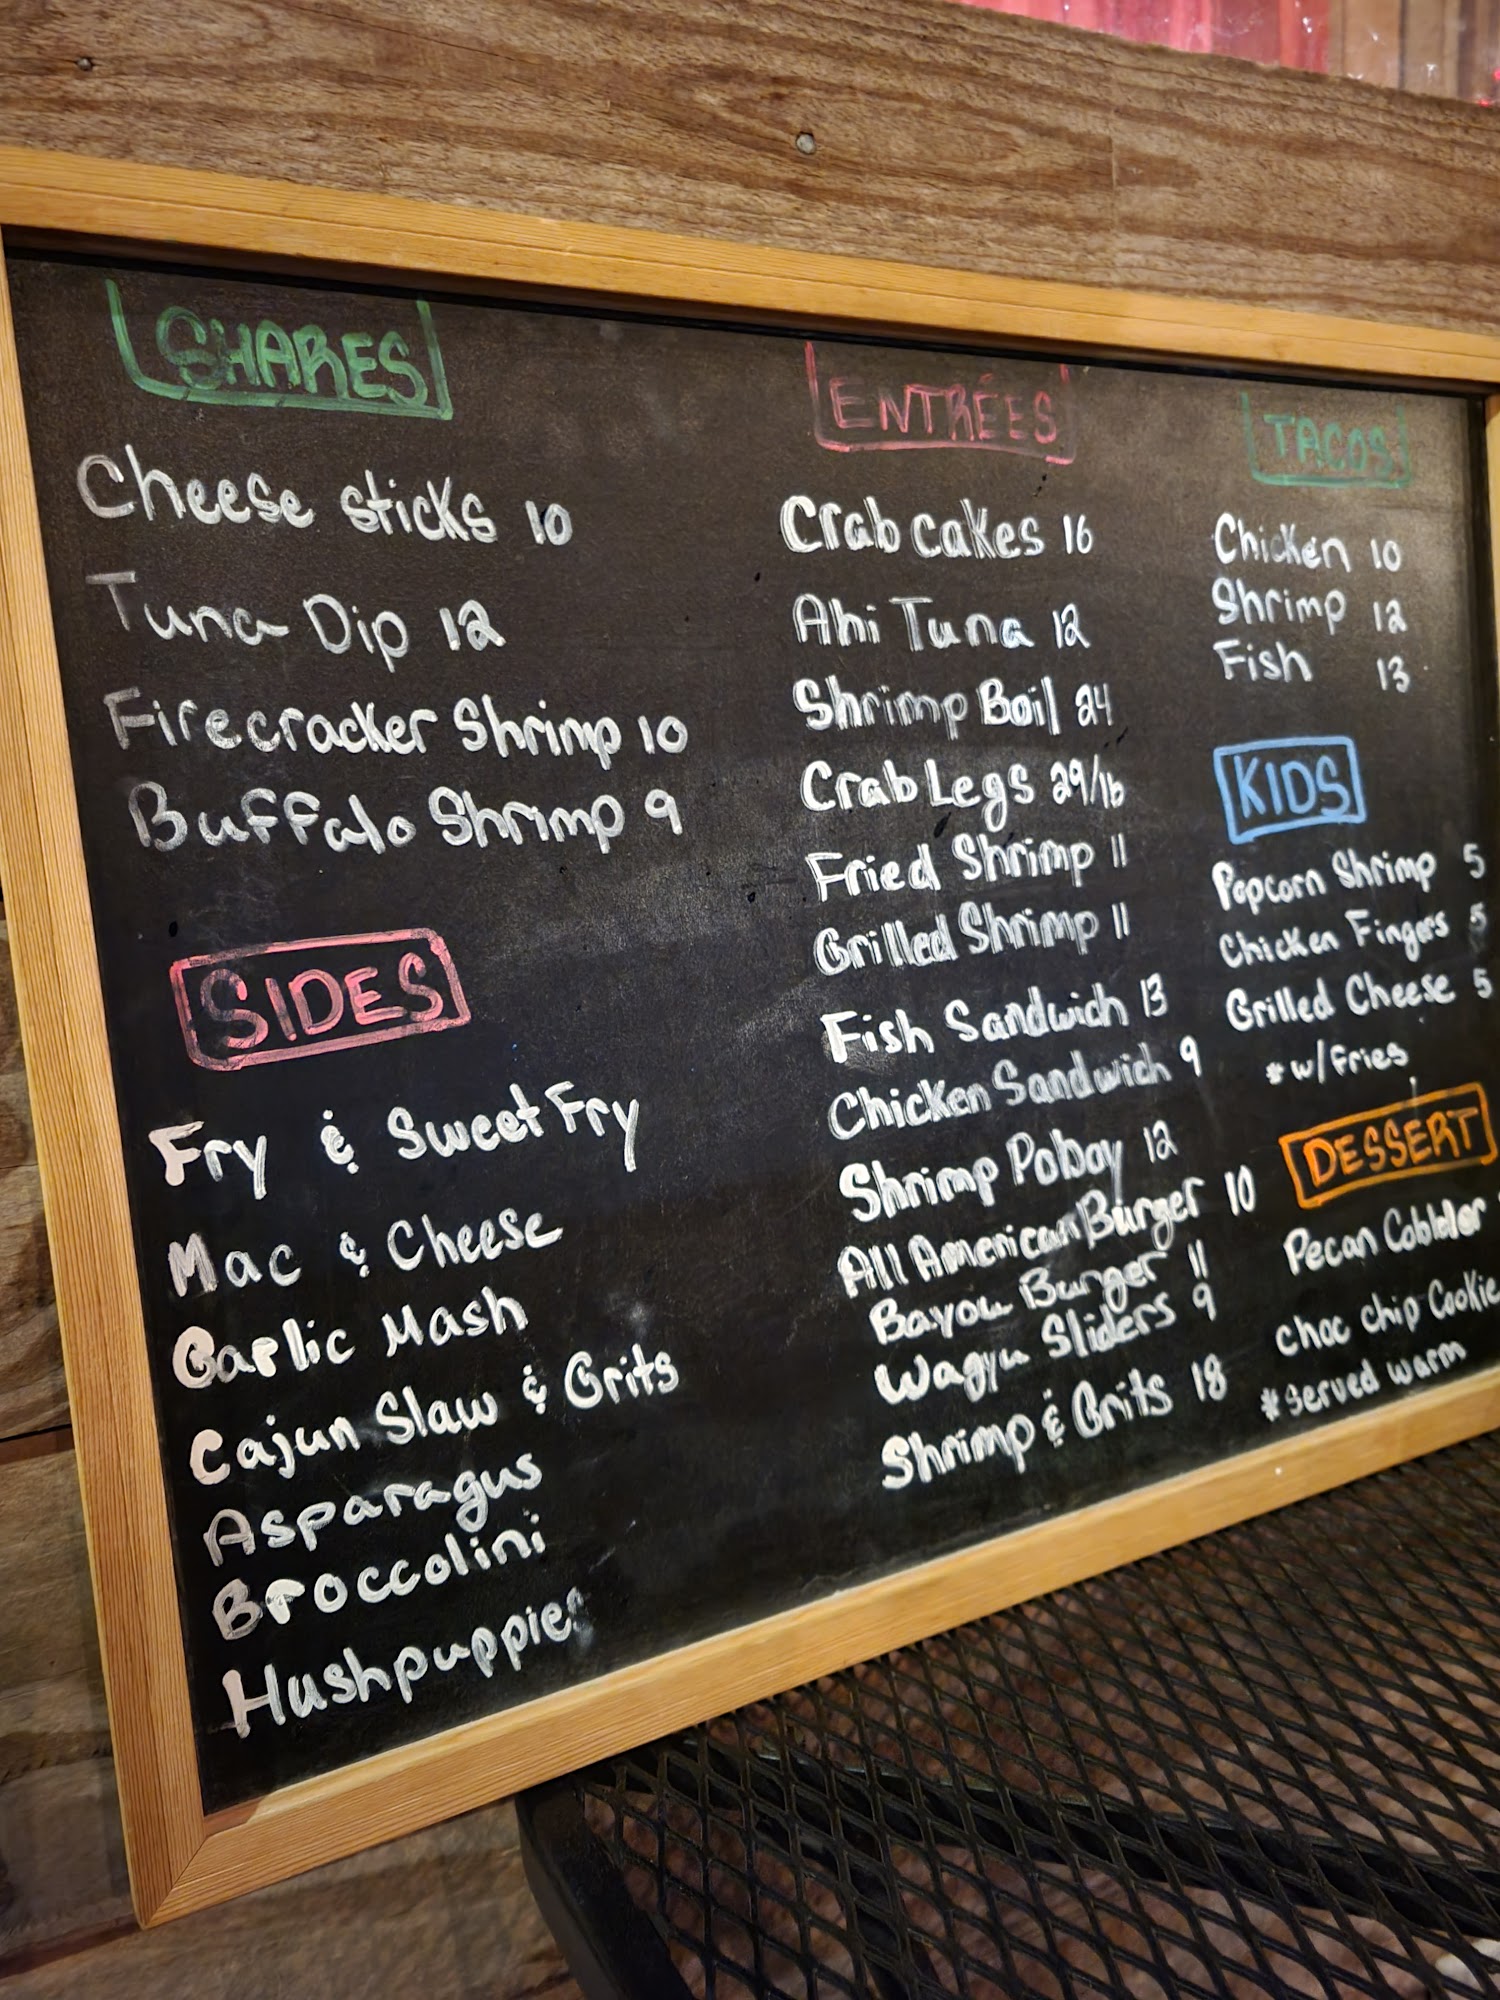 SHARES
Cheese sticks 10
Tuna Dip 12
Firecracker Shrimp 10
Buffalo Shrimp 9
SIDES
Fry & Sweet Fry
Mac & Cheese
Garlic Mash
Cajun Slaw & Grits
Asparagus
Broccolini
Hushpuppies
ENTRÉES
Crab cakes 16
Ahi Tuna 12
Shrimp Boil 24
Crab Legs 29/16
Fried Shrimp 11
Grilled Shrimp 11
Fish Sandwich 13
Chicken Sandwich 9
Shrimp Poboy 12
All American Burger 10
Bayou Burger 11
Wagyu Sliders 9
Shrimp & Grits 18
TACOS
Chicken 10
Shrimp 12
Fish 13
KIDS
Popcorn Shrimp 5
Chicken Fingers 5
Grilled Cheese 5
*w/Fries
DESSERT
Pecan Cobbler
Choc chip Cookie
*served warm